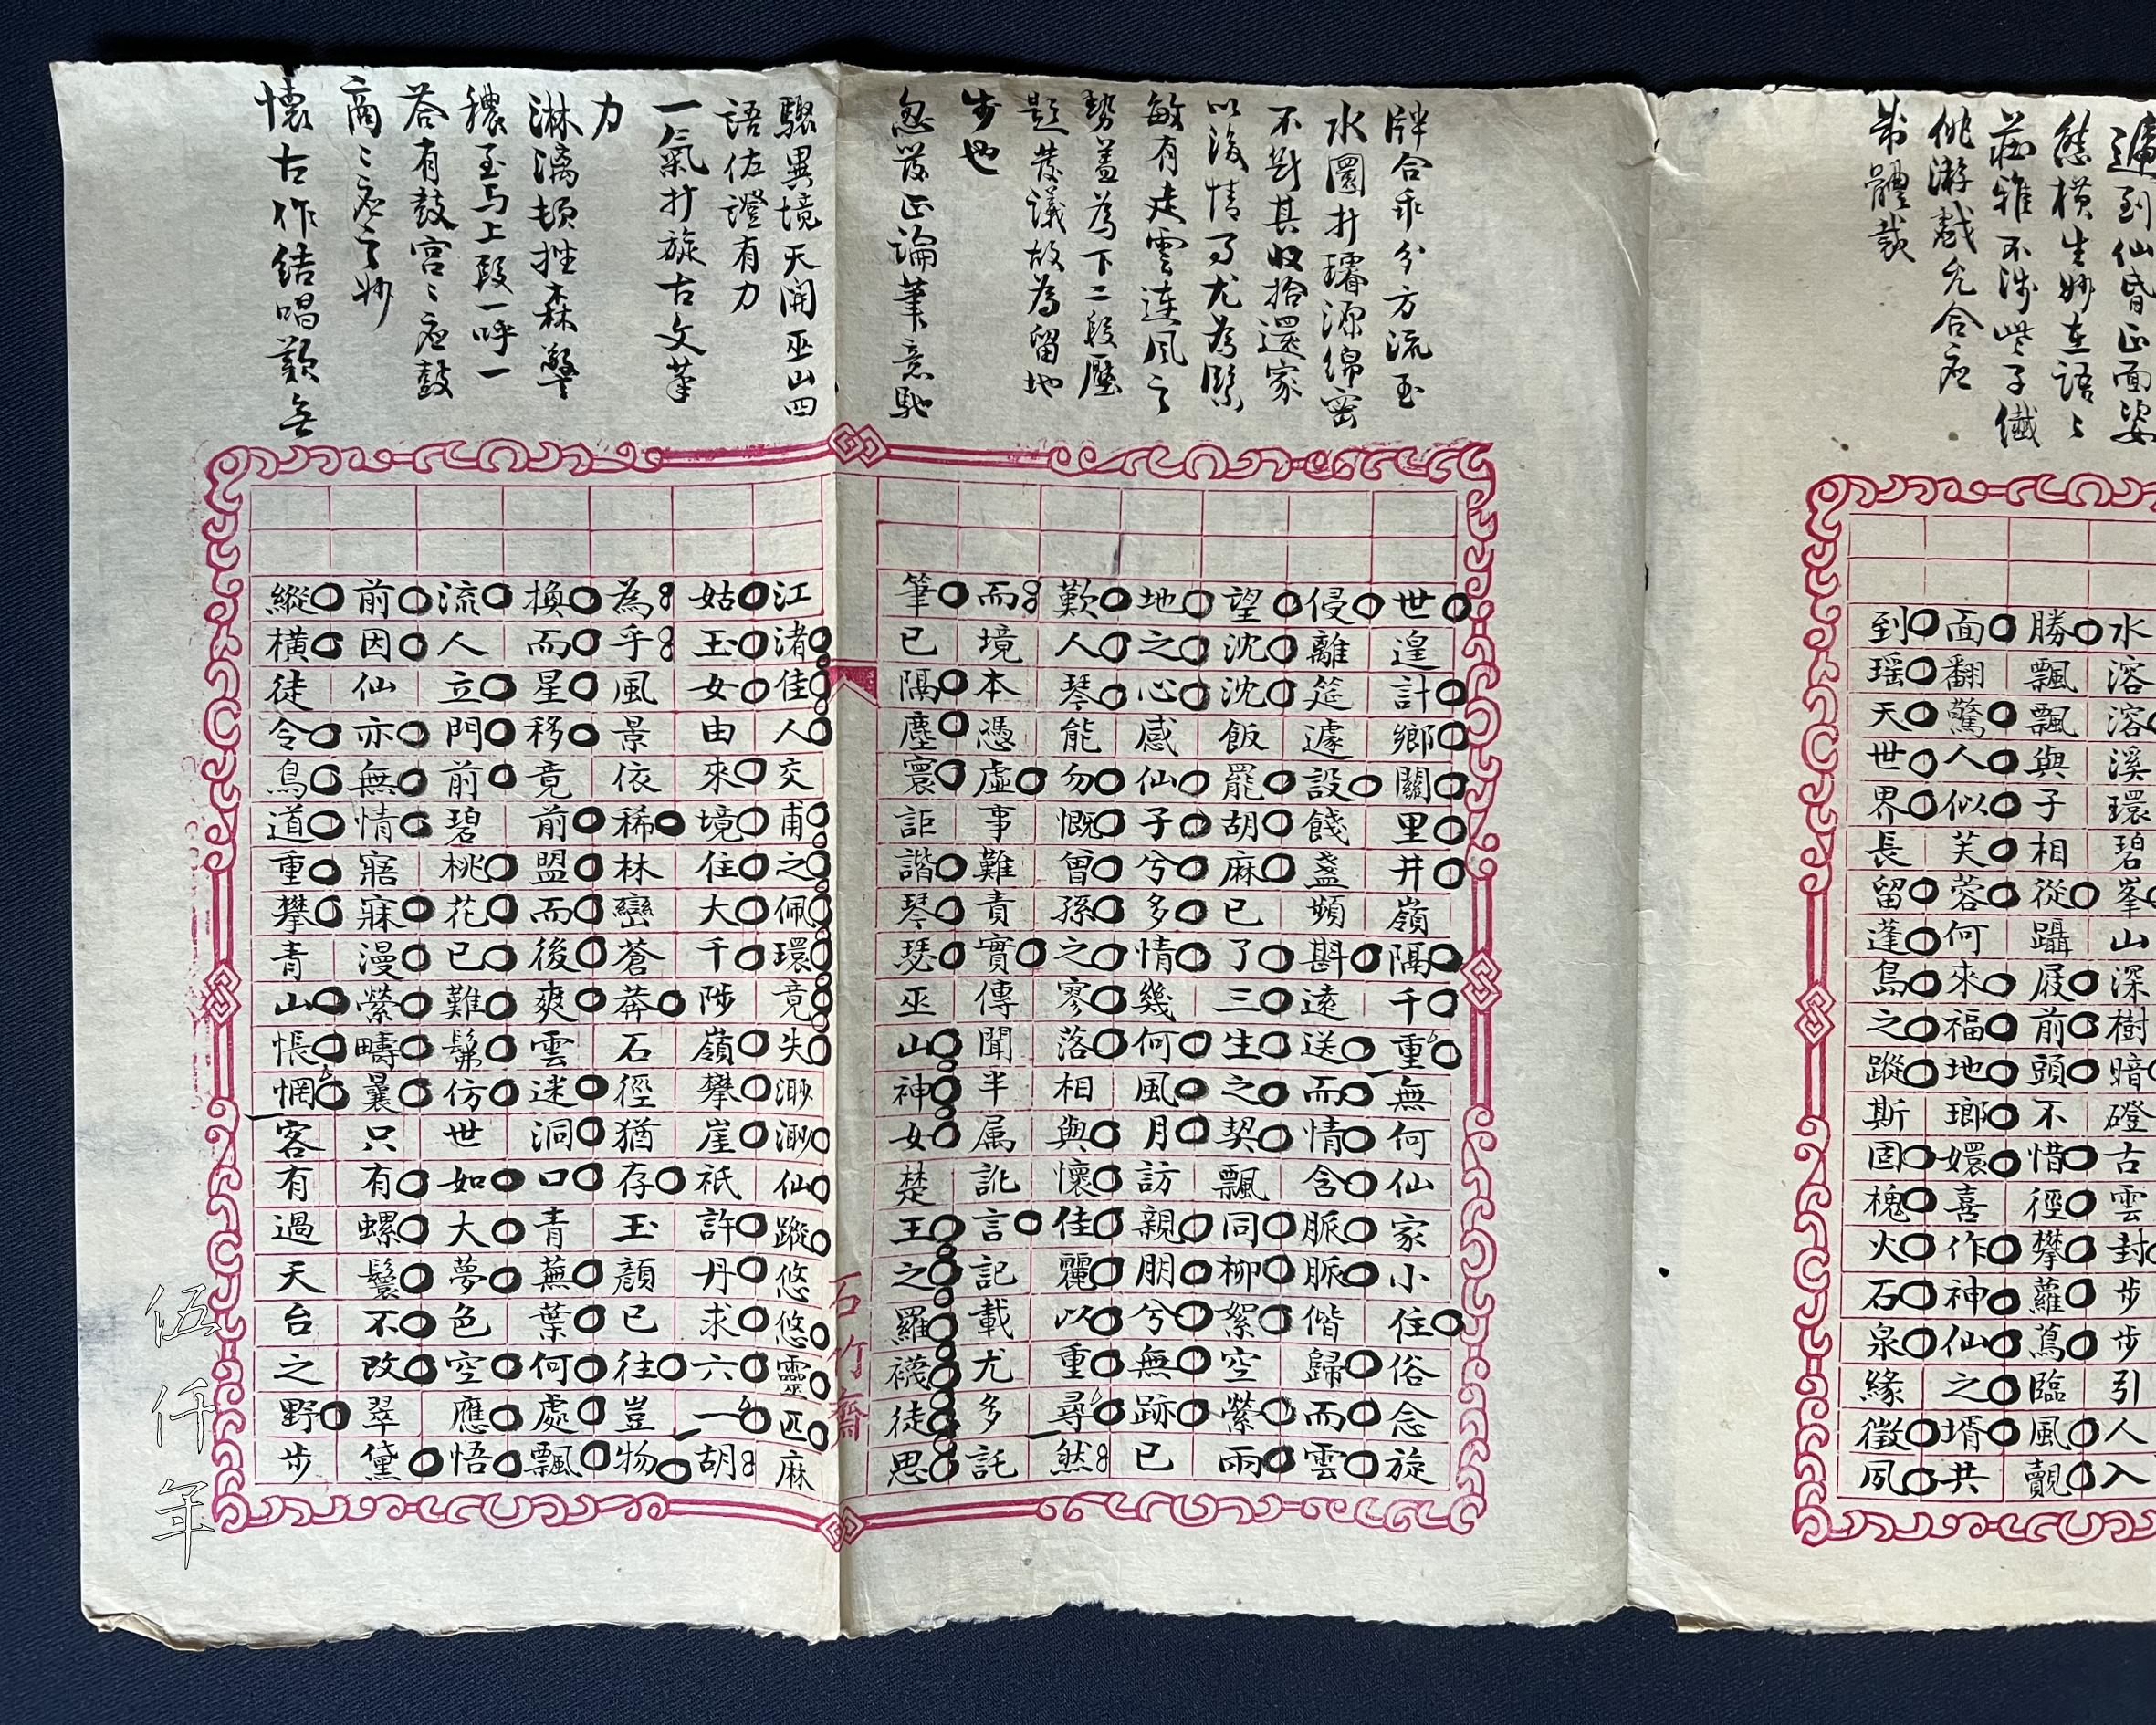 遍到仙昏正面姿
態橫生妙在語ミ
莊雅不涉些子纖
佻游戲允合應
制體裁
水溶溶溪環碧峯山深樹暗磴古雲封步步引人入
勝飄飄與子相從躡屐前頭不惜徑攀蘿蔦臨風覿
面翻驚人似芙蓉何來福地瑯嬛喜作神仙之壻共
到瑶天世界長留蓬島之蹤斯固槐火石泉緣徵夙
牉合乖分方流玉
水圓折璿源綿密
不對其收拾還家
以後情事尤為緊
敏有走雲連風之
勢蓋為下二段壓
題發議故為留地
步也
忽發正論筆意馳
驟異境天開巫山四
語佐證有力
一氣折旋古文筆
力
淋漓頓挫森
穠至与上段一呼一
答有鼓宮ミ應鼓
商ミ應之妙
懷古作結唱歎無
世遑計鄉關里井嶺隔千重無何仙家小住俗念旋
侵離筵遽設餞盞頻斟遠送而情含脈脈偕歸而雲
望沈沈飯罷胡麻已了三生之契飄同柳絮空縈兩
地之心感仙子兮多情幾何風月訪親朋兮無跡已
歎人琴能勿慨曾孫之寥落相與懷佳麗以重尋然
而境本憑虛事難責實傳聞半属訛言記載尤多託
筆已隔塵寰詎諧琴瑟巫山神女楚王之羅襪徒思
江渚佳人交甫之佩環竟失渺渺仙蹤悠悠靈匹麻
姑玉女由來境住大千陟嶺攀崖祇許丹求六一胡
為乎風景依稀林巒蒼莽石徑猶存玉顏已往豈物
換而星移竟前盟而後爽雲迷洞口青蕪葉何處飄
流人立門前碧桃花已難髴仿世如大夢色空應悟
前因仙亦無情寤寐漫縈疇曩只有螺鬟不改翠黛
縱橫徒令鳥道重攀青山悵惘客有過天台之野步
石竹齋
伍仟年